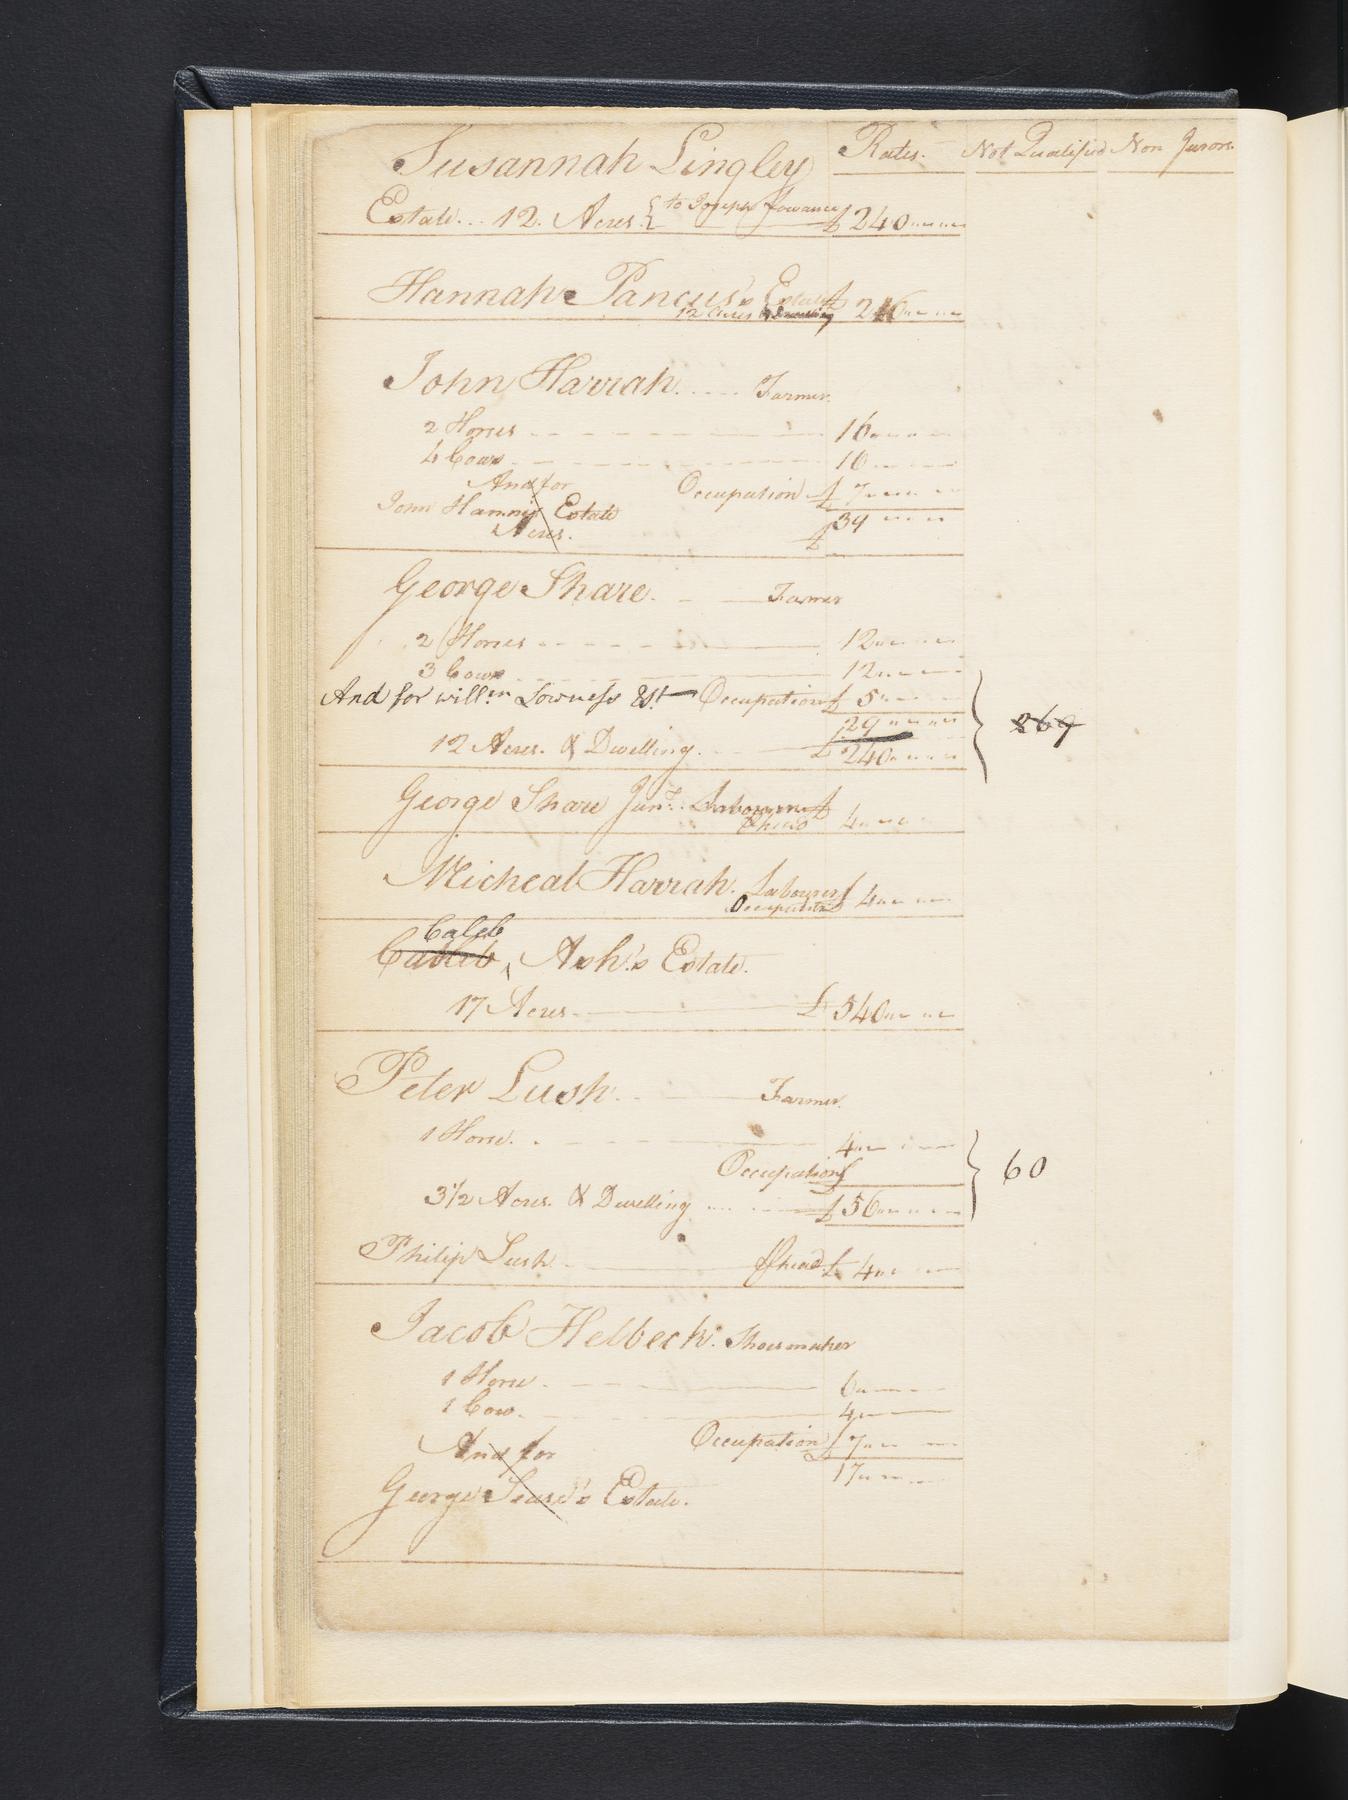 Susannah Lingley Rates. Not Qualified Non Jurors
Estate... 12. Acres. { to Joseph £ 240
Hannah Pancus's Estate £
12 Acres & Dwelling
John Harrah. .... Farmer.
2 Horses 16
4 Cows 16
And for Occupation £ 7
John Estate £ 39
Acres. £
George Share. Farmer
2 Horses 12
3 Cows 12
And for willm Lowness Est Occupation £ 5
£ 29
12 Acres. & Dwelling. £ 240 } 269
George Share Junr. Labourer £
P head 4
Micheal Harrah. Labourer £ 4
Occupation
Caleb
Ash's Estate.
17 Acres £ 340
Peter Lush. Farmer.
1 Horse. 4
Occupation £ } 60
3 1/2 Acres. & Dwelling .... £ 56
Philip Lush P head £ 4
Jacob Helbeck. Shoemaker
1 Horse. 6
1 Cow. 4
And for Occupation £ 7
17
George Estate.